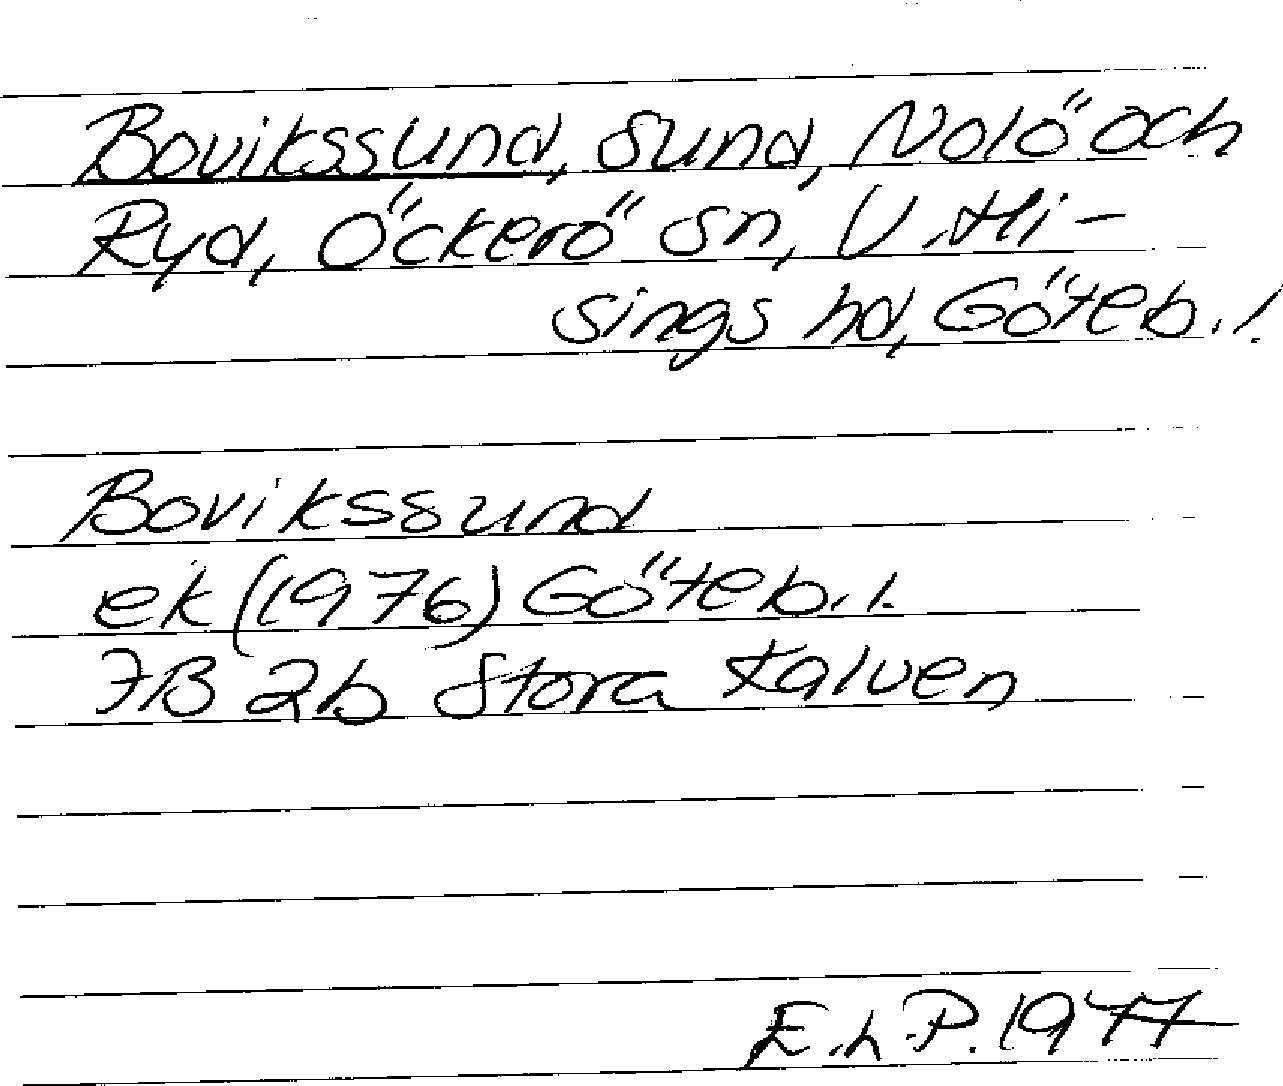 Bovikssund, sund, Nolö och
Ryd, Öckerö sn, V. Hi-
sings hd, Göteb. l.
Bovikssund
ek (1976) Göteb. l.
7B 2b Stora Kalven
E.L.P. 1977